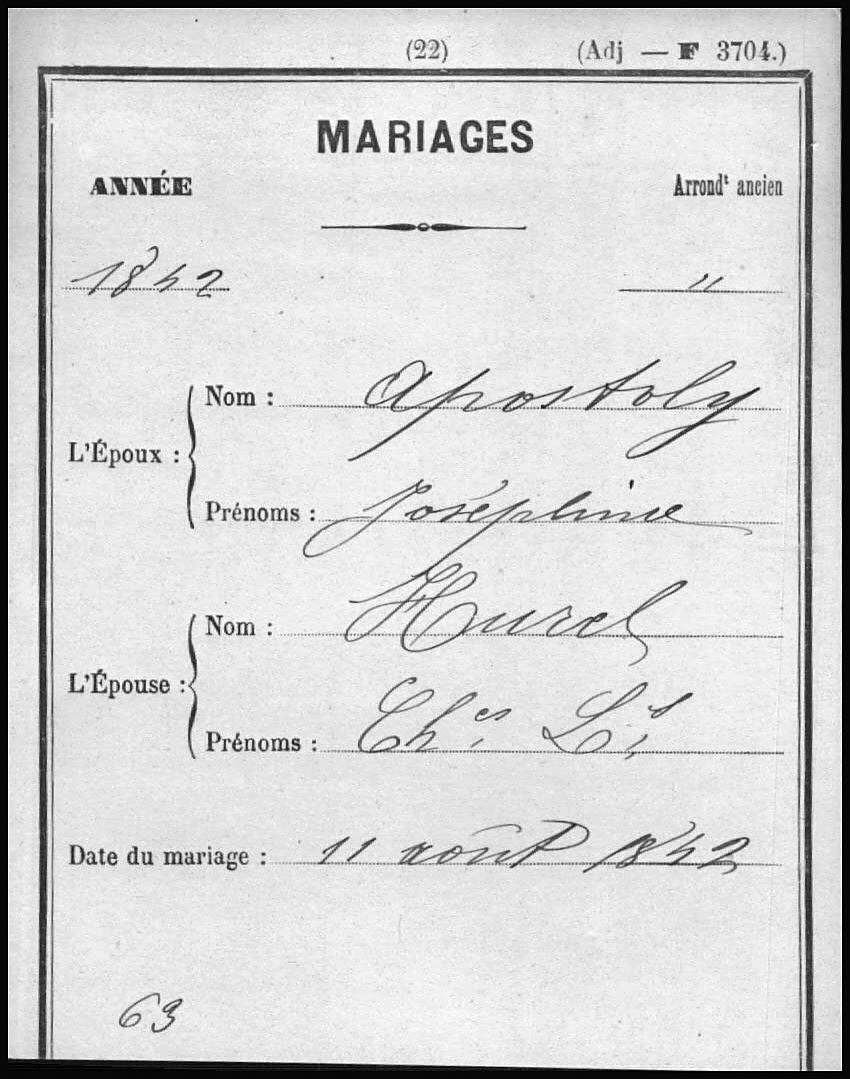 (22) (Adj — F 3704.)
MARIAGES
ANNÉE Arrondt ancien
1842 "
L'Époux :
Nom : Apostoly
Prénoms : Joséphine
L'Épouse :
Nom : Hurel
Prénoms : Ches Ls
Date du mariage : 11 août 1842
63